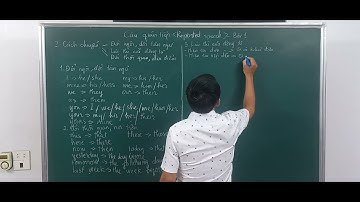 Câu gián tiếp <Reported speech> Bài 1
2. Cách chuyển - Đổi ngôi, đổi tân ngữ
- Lùi thì của động từ
- Đổi thời gian, địa điểm
1. Đổi ngôi, đổi tân ngữ
I → he/she
my → his/her
me → him/her
we → they
our → their
us → them
you → I/we/he/she/me/him/her
your → my/his/her/their
2. Đổi thời gian, nơi chốn
this → that
these → those
here → there
now → then
today → that
yesterday → the day before
tomorrow → the following day
last week → the week before
3. Lùi thì của động từ
- Hiện tại đơn → Quá khứ đơn
- Hiện tại tiếp diễn → Q